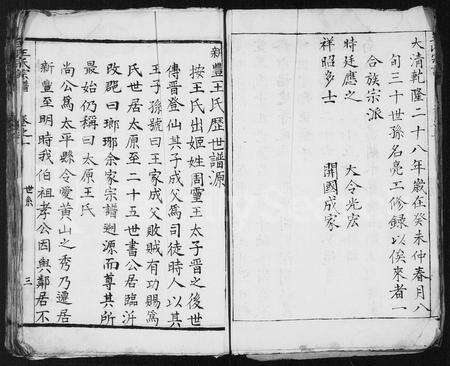 大清乾隆二十八年歲在癸未仲春月八
旬三十世孫名亮工修録以俟來者一
合族宗派
時廷應之　大令光宏
祥昭多士　開國成家
新豐王氏歷世譜源
按王氏出姬姓周靈王太子晋之後世
傳晉登仙其子成父為司徒時人以其
王子孫號曰王家成父敗賊有功賜為
氏世居太原至二十五世書公居臨沂
改郡曰瑯琊余家宗譜遡源而尊其所
最始仍稱曰太原王氏
尚公為太平縣令愛黄山之秀乃遷居
新豐至明時我伯祖孝公因與鄰居不
王氏宗譜
卷之一
世系
三